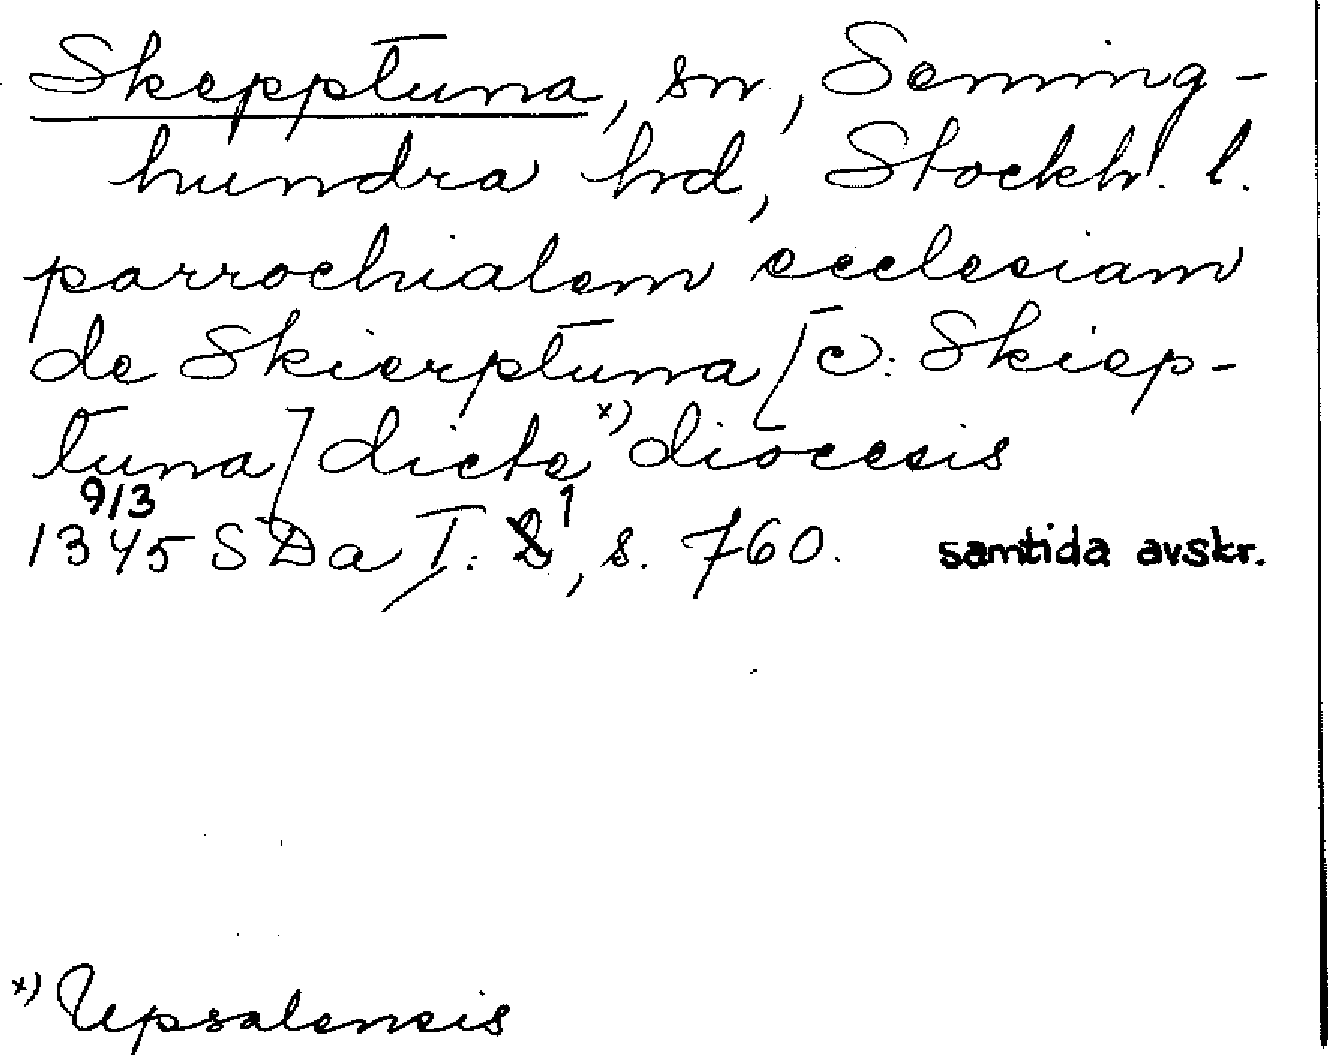 Skepptuna, sn, Seming-
hundra hd, Stockh. l.
parrochialem ecclesiam
de Skierptuna [ɔ: Skiep-
tuna] dicte x) diocesis
9/3 1
1345 SDa I: , s. 760. samtida avskr.
x) Upsalensis